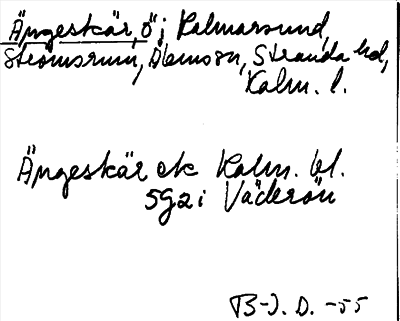 Ängeskär, ö i Kalmarsund,
Strömsrum, Ålems sn, Stranda hd,
Kalm. l.
Ängeskär ek Kalm. bl.
5g2i Väderön
B-J. D. -55